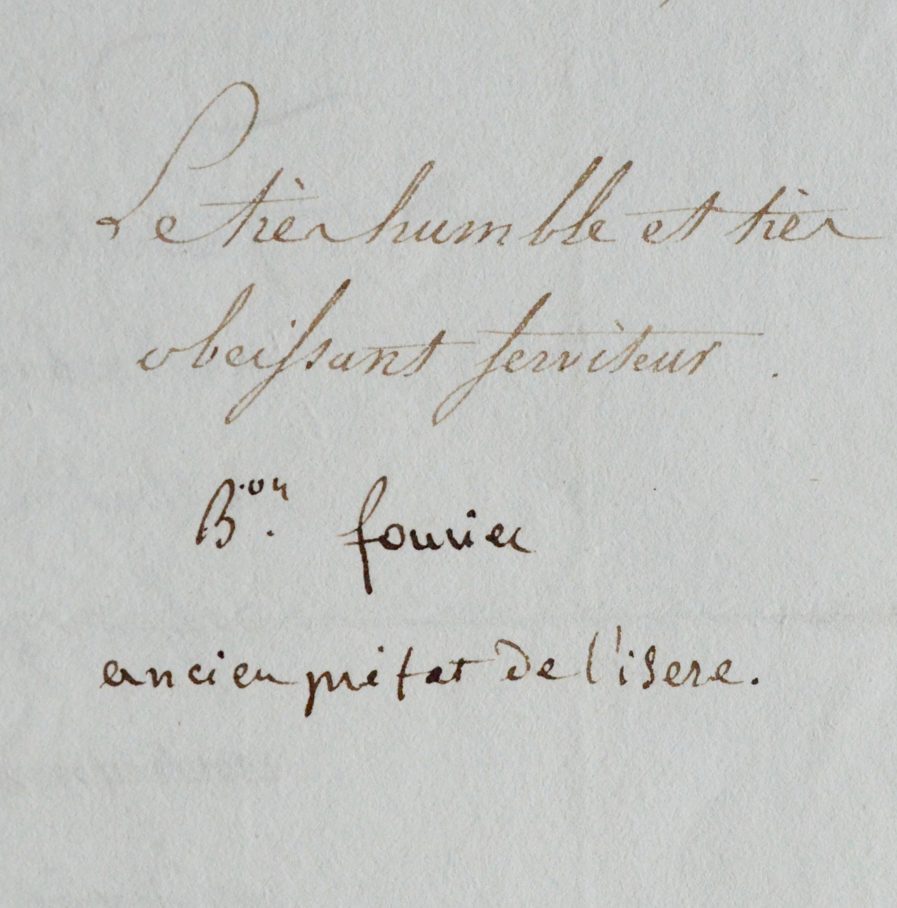 Le très humble et très
obeissant serviteur.
B.on fourier
ancien préfet de l'isere.